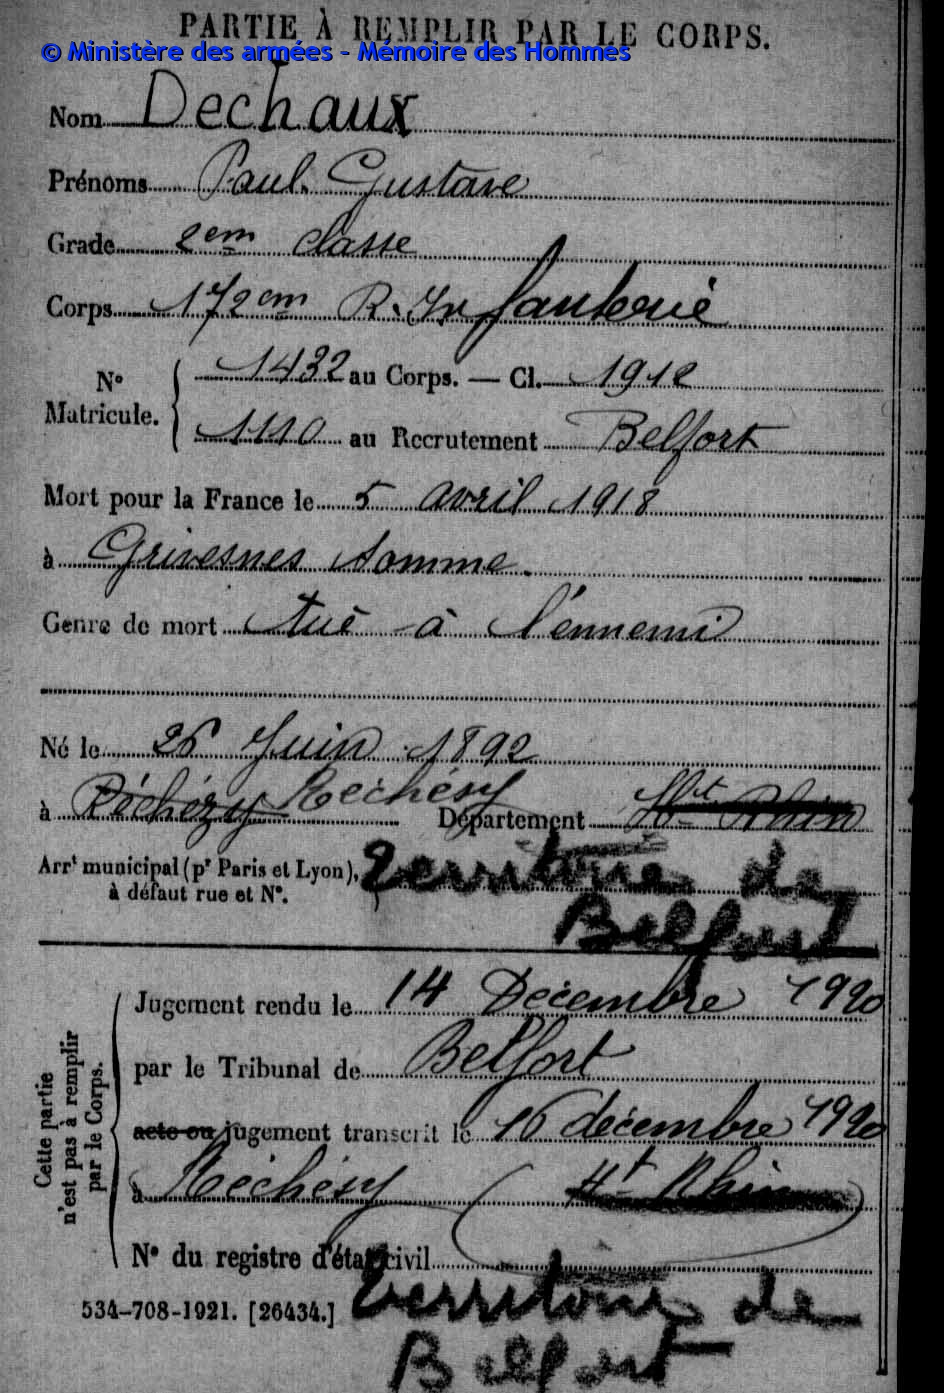 PARTIE À REMPLIR PAR LE CORPS.
© Ministère des armées - Mémoire des Hommes
Nom Dechaux
Prénoms Paul. Gustave
Grade 2em classe
Corps 172em R. Infanterie
N° Matricule. 1432 au Corps. — Cl. 1912
1110 au Recrutement Belfort
Mort pour la France le 5 avril 1918
à Grivesnes Somme.
Genre de mort Tué à l'ennemi
Né le 26 Juin 1892
à Réchézy Réchésy Département Ht Rhin
Arrt municipal (pr Paris et Lyon), Territoire de
à défaut rue et N°. Belfort
Cette partie n'est pas à remplir par le Corps.
Jugement rendu le 14 Décembre 1920
par le Tribunal de Belfort
acte ou jugement transcrit le 16 décembre 1920
à Réchésy Ht Rhin
N° du registre d'état civil
534-708-1921. [26434.] Territoire de
Belfort